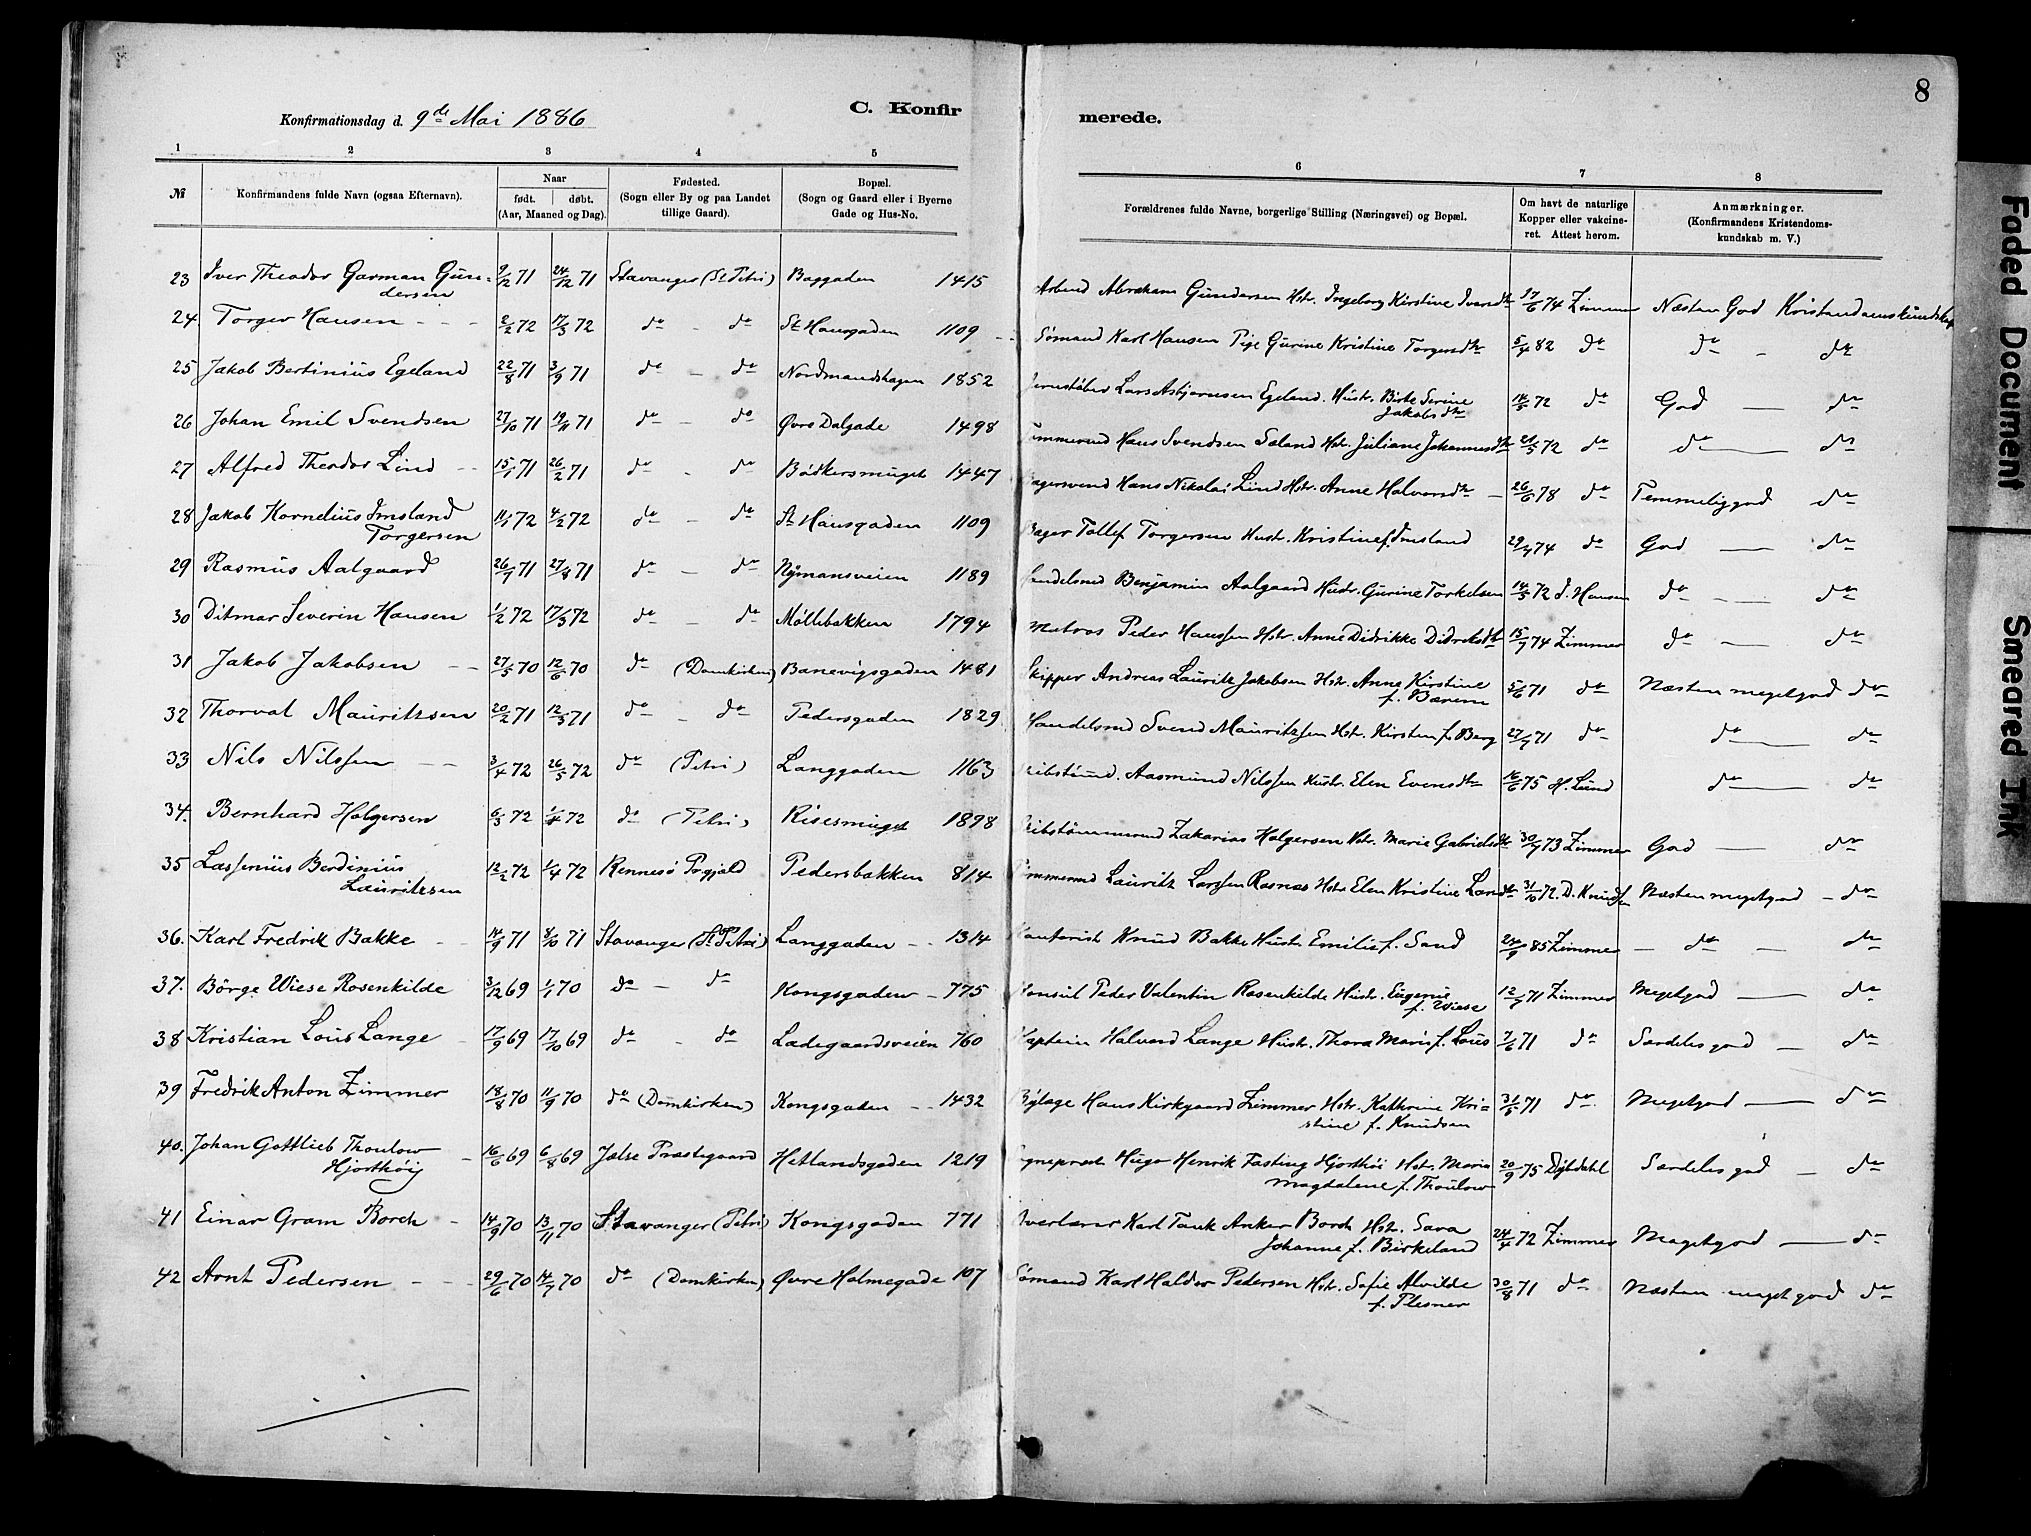 8
Konfirmationsdag d. 9de Mai 1886
C. Konfir
merede.
1 2 3 4 5 6 7 8
№ Konfirmandens fulde Navn (ogsaa Efternavn). Naar født. døbt. (Aar, Maaned og Dag). Fødested. (Sogn eller By og paa Landet tillige Gaard). Bopæl. (Sogn og Gaard eller i Byerne Gade og Hus-No.
Forældrenes fulde Navne, borgerlige Stilling (Næringsvei) og Bopæl. Om havt de naturlige Kopper eller vakcineret. Attest herom. Anmærkninger. (Konfirmandens Kristendomskundskab m. V.)
23 Iver Theodor Garman Gundersen 9/12 71 24/12 71 Stavanger (St Petri) Baggaden 1415 Arbmd Abraham Gundersen Hstr. Ingeborg Kirstine Iversdtr 17/6 74 Zimmer Næsten God Kristendomskundskap
24. Torger Hansen 2/2 72 17/3 72 do - do St Hansgaden 1109 Sømand Karl Hansen Pige Gurine Kristine Torgersdtr 5/4 82 do do - do
25 Jakob Bertinius Egeland 22/8 71 3/9 71 do - do Nordmandshagen 1852 Jernstøber Lars Asbjørnsen Egeland. Hustr. Birte Serine Jakobsdtr 14/5 72 do God - do
26 Johan Emil Svendsen 27/10 71 19/11 71 do - do Øvre Dalgade 1498 Tømmermd Hans Svendsen Saland Hstr. Juliane Johannesdtr 21/5 72 do do - do
27 Alfred Theodor Lind 15/1 71 26/2 71 do - do Bødkersmuget 1447 Bagersvend Hans Nikolai Lind Hstr. Anne Halvorsdtr 26/6 78 do Temmelig god do
28 Jakob Kornelius Imsland Torgersen 11/1 72 4/2 72 do - do St Hansgaden 1109 Bager Tollef Torgersen Hustr. Kristine f. Imsland 29/7 74 do God - do
29 Rasmus Aalgaard 26/7 71 27/8 71 do - do Nymansveien 1189 Handelsmd Benjamin Aalgaard Hustr. Gurine Torkelsen 14/5 72 J. Hansen do - do
30 Ditmar Severin Hansen 1/2 72 17/3 72 do - do Møllebakken 1794 Matros Peder Hanssen Hstr. Anne Didrikke Didriksdtr 15/7 74 Zimmer do - do
31 Jakob Jakobsen 27/5 70 12/6 70 do (Domkirken) Banevigsgaden 1481 Skipper Andreas Lauritz Jakobsen Hstr. Anne Kirstine f. Bærem 5/6 71 do Næsten meget god do
32 Thorval Mauritzsen 20/2 71 12/3 71 do - do Pedersgaden 1829 Handelsmd Svend Mauritzsen Hstr. Kirsten f. Berg 27/7 71 do do - do
33 Nils Nilssen 3/4 72 26/5 72 do (Petri) Langgaden 1163 Aasmund Nilssen Hustr. Elen Evensdtr 16/6 75 H. Lund do - do
34. Bernhard Holgersen 6/3 72 1/4 72 do (Petri) Risesmuget 1898 Skibstømmermd Zakarias Holgersen Hstr. Marie Gabrielsdtr 30/7 73 Zimmer God - do
35 Lassenius Berdinius Lauritzsen 12/2 72 1/4 72 Rennesø Prgjæld Pedersbakken 814 Tømmermd Lauritz Larssen Rasnas Hstr. Elen Kristine Larsdtr 31/10 72. D. Knudsen Næsten meget god - do
36. Karl Fredrik Bakke 14/9 71 8/10 71 Stavanger (St Petri) Langgaden 1314 Kontorist Knud Bakke Hustr. Emilie f. Sand 24/9 85 Zimmer - do - do
37. Børge Wiese Rosenkilde 3/12 69 1/1 70 do - do Kongsgaden - 775 Konsul Peder Valentin Rosenkilde Hustr. Eugenie f. Wiese 12/7 71 Zimmer Meget god - do
38 Kristian Lous Lange 17/9 69 17/10 69 do - do Ladegaardsveien 760 Kaptein Halvard Lange Hustr. Thora Marie f. Lous 7/6 71 do Særdeles god - do
39 Fredrik Anton Zimmer 18/8 70 11/9 70 do (Domkirken) Kongsgaden 1432 Bylæge Hans Kirkgaard Zimmer Hstr. Kathrine Kristine f. Knudsen 31/5 71 do. Meget god - do
40. Johan Gottlieb Thoulow Hjorthøij 16/6 69 6/8 69 Jælse Præstegaard Hetlandsgaden 1219 Sogneprest Hugo Henrik Fasting Hjorthøi Hstr. Maria Magdalene f. Thoulow 20/9 75 Dybdahl Særdeles god - do
41 Einar Gram Borch 14/9 70 13/11 70 Stavanger (Petri) Kongsgaden 771 Overlærer Karl Tank Anker Borch Hstr. Sara Johanne f. Birkeland 24/4 72 Zimmer Meget god - do
42 Arnt Pedersen 29/6 70 14/7 70 do (Domkirken) Øvre Holmegade 107 Sømand Karl Haldor Pedersen Hstr. Sofie Alvilde f. Plesner 30/8 71 do Næsten meget god do
Faded Document
Smeared Ink